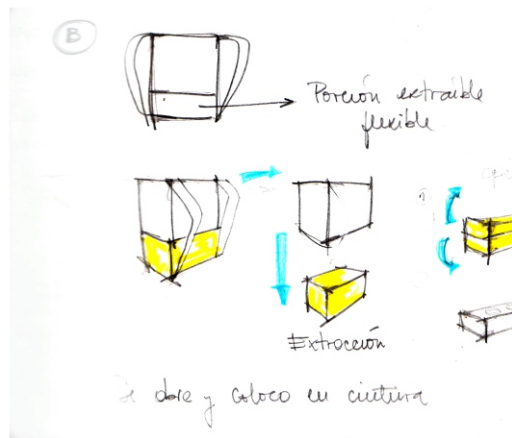 B
Porción extraíble
flexible
Extracción
y coloco en cintura